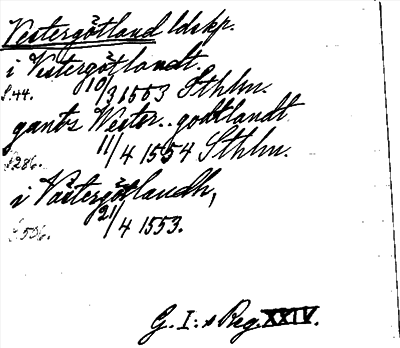 Vestergötland ldskp.
i Vestergötlandt.
S. 44. 10/3 1553 Sthlm.
gantz Wester..godtlandt
S 286. 11/4 1554 Sthlm.
i Västergötlandh,
S. 506. 21/4 1553.
G. I:s Reg. XXIV.